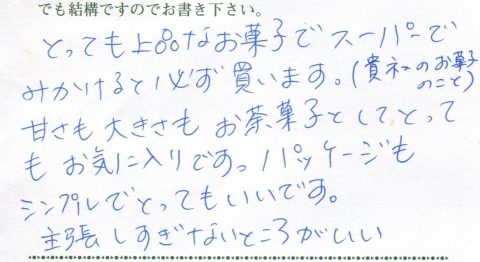 でも結構ですのでお書き下さい。
とっても上品なお菓子でスーパーで
みかけると必ず買います。(貴社のお菓子
のこと)
甘さも大きさもお茶菓子としてとって
もお気に入りです。パッケージも
シンプルでとってもいいです。
主張しすぎないところがいい